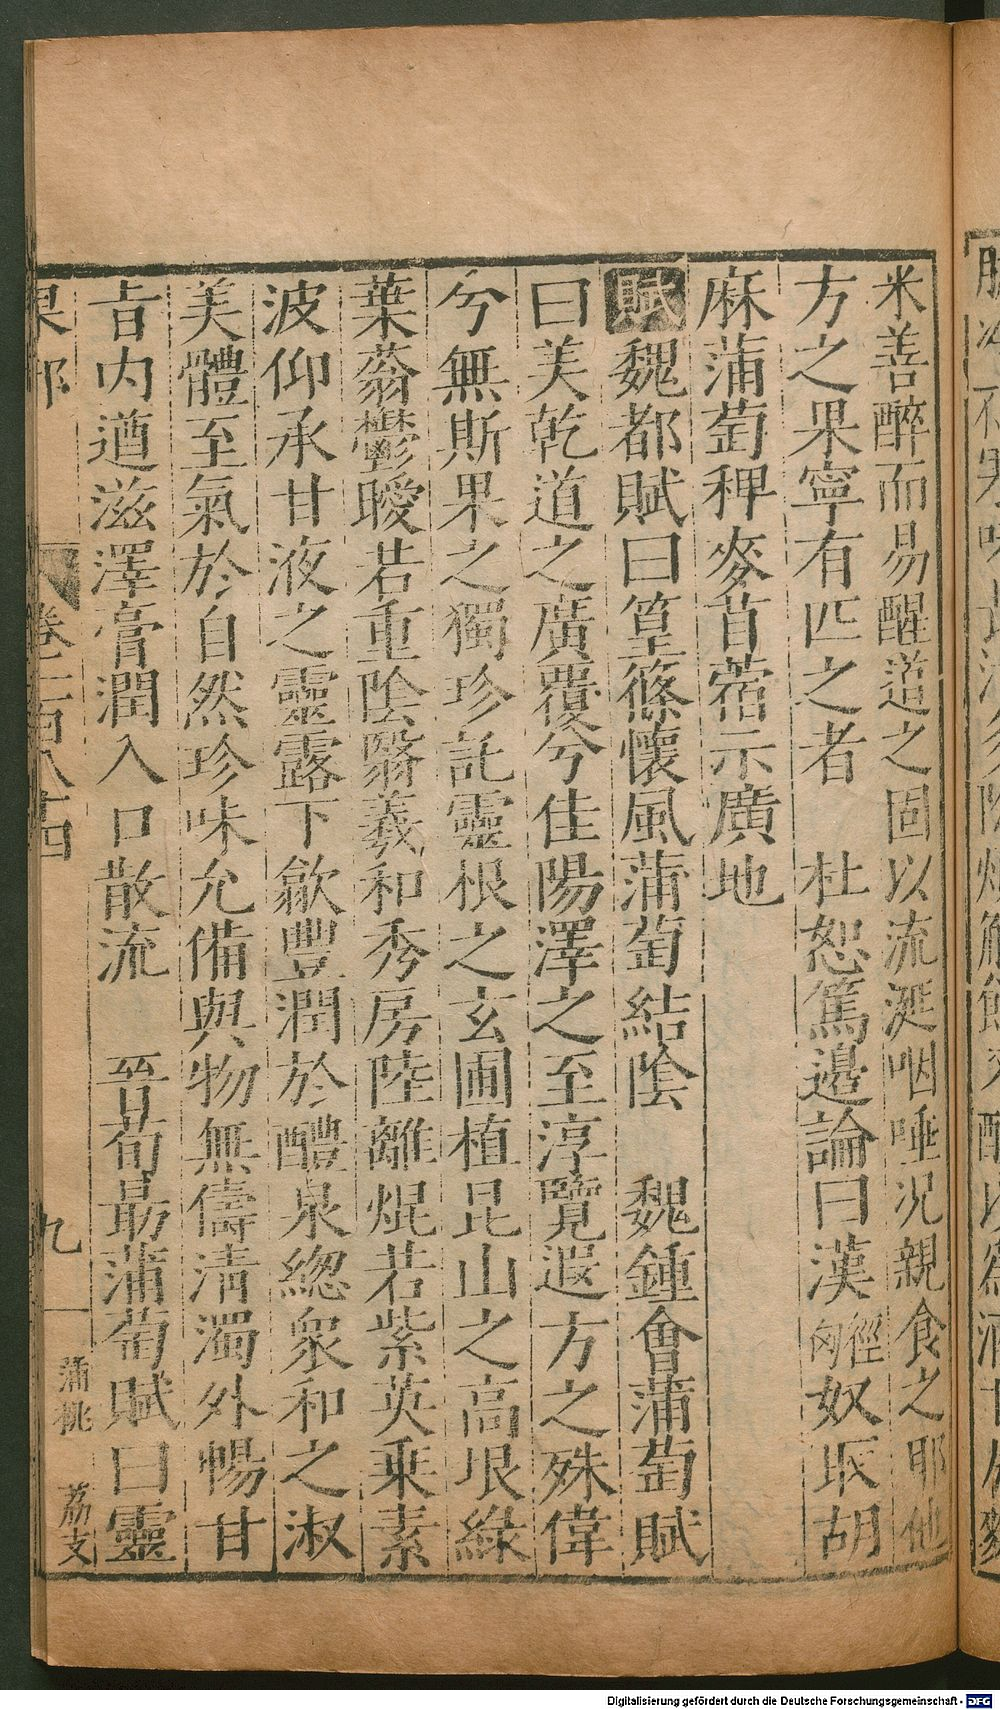 米善醉而易醒道之固以流涎咽唾况親食之耶他
方之果寧有匹之者　杜恕篤邊論曰漢匈徑奴取胡
麻蒲萄稗麥苜蓿示廣地
賦魏都賦曰篁篠懷風蒲萄結陰　魏鍾會蒲萄賦
曰美乾道之廣覆兮佳陽澤之至淳覽遐方之殊偉
兮無斯果之獨珍託靈根之玄圃植昆山之高垠綠
葉蓊鬱曖若重陰翳羲和秀房陸離焜若紫英乗素
波仰承甘液之靈露下歙豐潤於醴泉緫衆和之淑
美體至氣於自然珍味允備與物無儔清濁外暢甘
旨内遒滋澤膏潤入口散流　晉荀勗蒲萄賦曰靈
果部　卷三百八十四　九　蒲桃　荔支
Digitalisierung gefördert durch die Deutsche Forschungsgemeinschaft - DFG